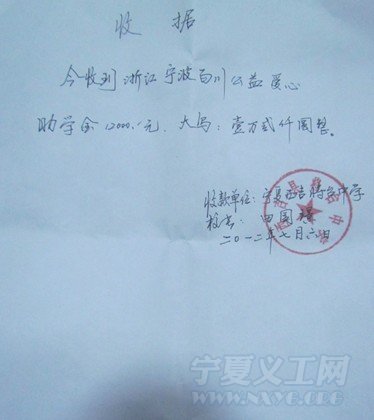 收 据
今收到 浙江 宁波百川公益爱心
助学金 12000.1元. 大写: 壹万贰仟圆整.
收款单位: 宁夏西吉将台中学
校长: 田国
二〇一二年七月六日
宁夏义工网
WWW.NXYG.ORG